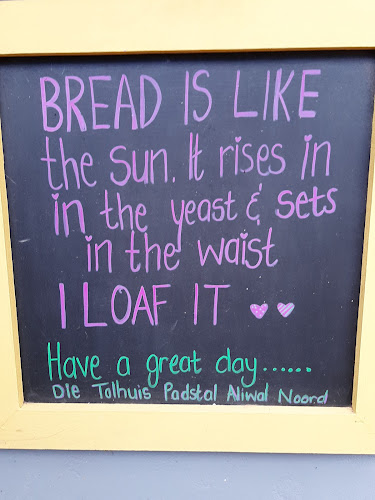 BREAD IS LIKE
the sun. It rises in
in the yeast & sets
in the waist
I LOAF IT
Have a great day......
Die Tolhuis Padstal Aliwal Noord